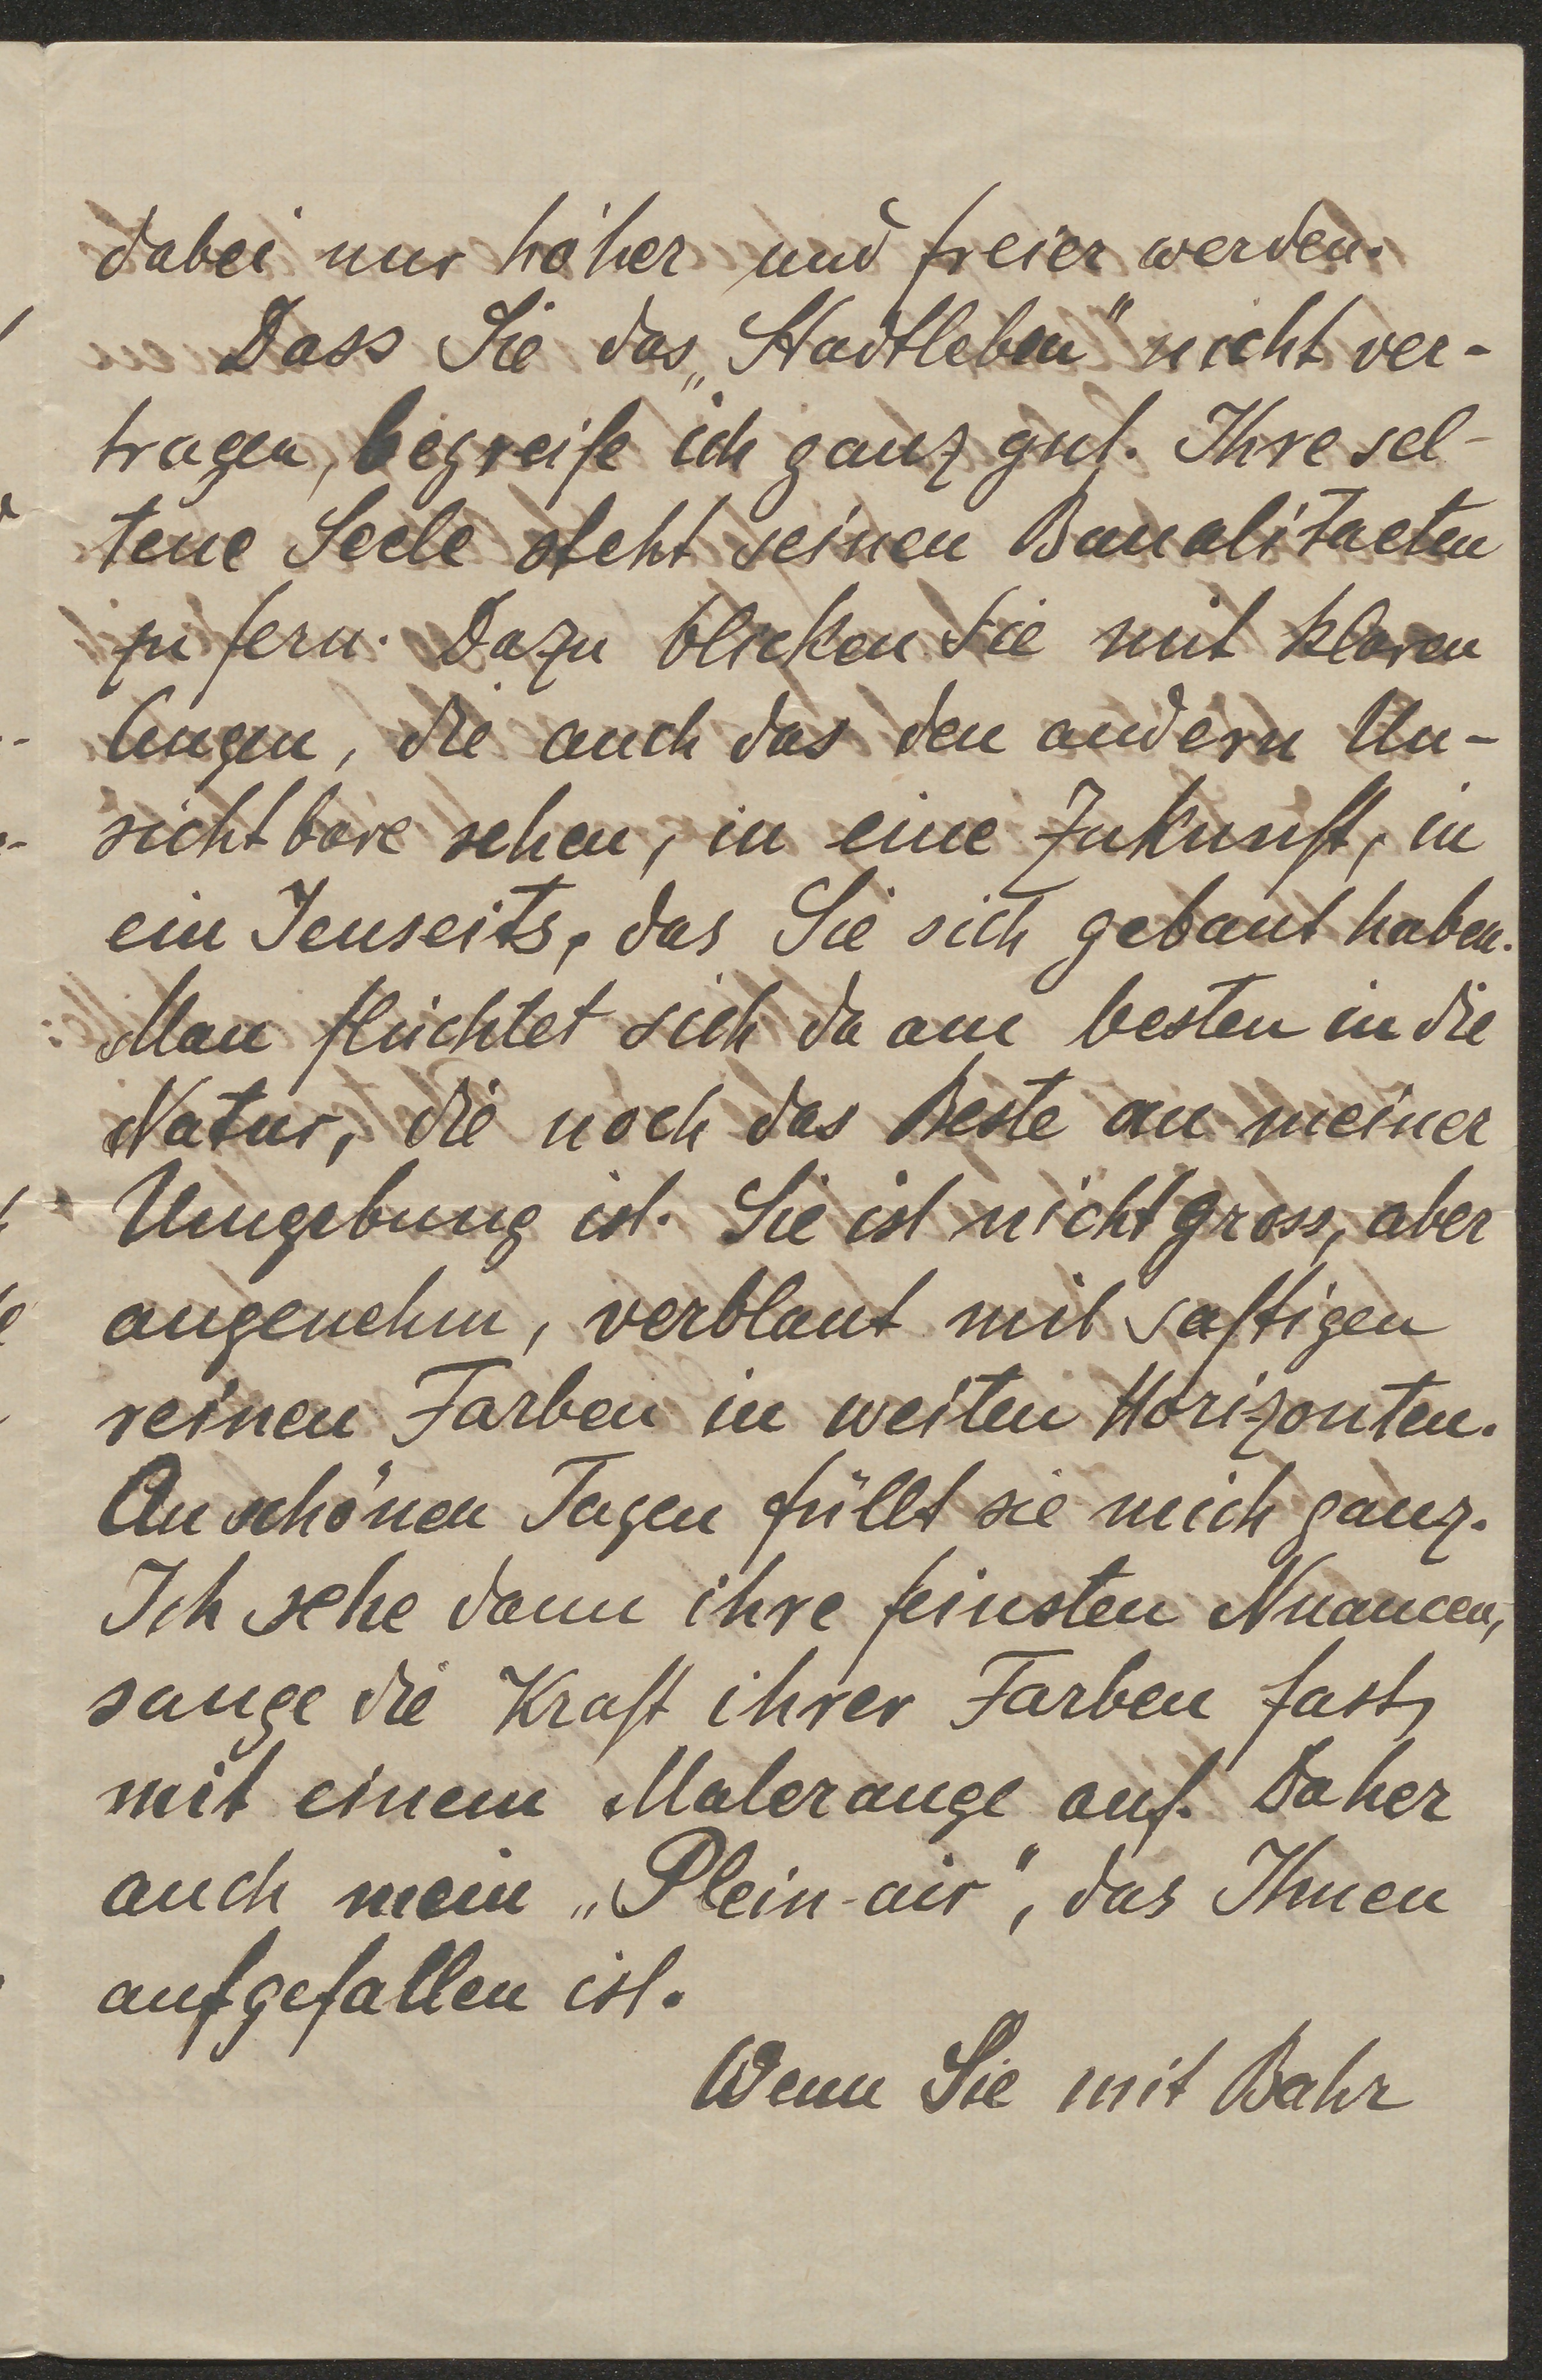 dabei nur höher und freier werden.
Dass Sie das „Stadtleben" nicht ver-
tragen, begreife ich ganz gut. Ihre sel-
tene Seele steht seinen Banalitaeten
zu fern. Dazu blicken Sie mit klaren
Augen, die auch das den andern Un-
sichtbare sehen, in eine Zukunft, in
ein Jenseits, das Sie sich gebaut haben.
Man flüchtet sich da am besten in die
Natur, die noch das Beste an meiner
Umgebung ist. Sie ist nicht gross, aber
angenehm, verblaut mit saftigen
reinen Farben in weiten Horizonten.
An schönen Tagen füllt sie mich ganz.
Ich sehe dann ihre feinsten Nuancen,
sauge die Kraft ihrer Farben fast,
mit einem Malerauge auf. Daher
auch mein „Plein-air", das Ihnen
aufgefallen ist.
Wenn Sie mit Bahr